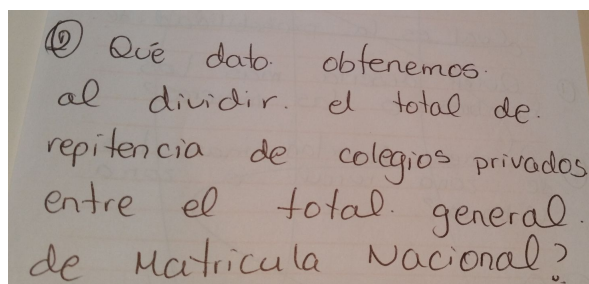 ⑩ Qué dato. obtenemos.
al dividir. el total de.
repitencia de colegios privados
entre el total. general.
de Matricula Nacional?